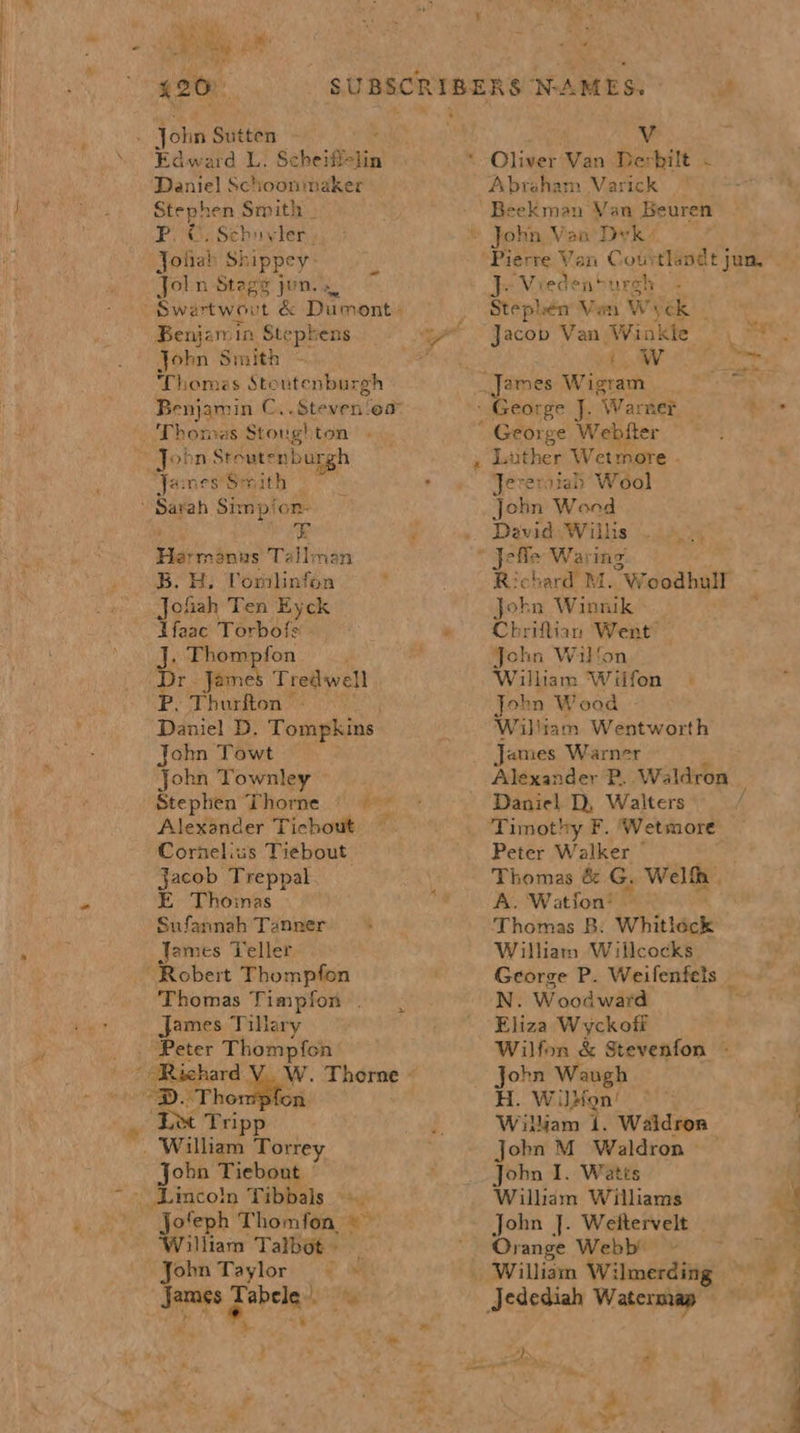 420 SUBSCRIBERS NAMES.
John Sutten
Edward L. Scheiffelin
Daniel Schoonmaker
Stephen Smith
P. C. Schuyler
Joſiah Shippey
John Stagg jun.
Swartwout & Dumont
Benjamin Stephens
John Smith
Thomas Stoutenburgh
Benjamin C. Stevenſon
Thomas Stoughton
John Stoutenburgh
James Smith
Sarah Simpſon
T
Harmanus Tallman
B. H. Tomlinſon
Joſiah Ten Eyck
Iſaac Torboſs
J. Thompſon
Dr James Tredwell
P. Thurſton
Daniel D. Tompkins
John Towt
John Townley
Stephen Thorne
Alexander Tiebout
Cornelius Tiebout
Jacob Treppal
E Thomas
Suſannah Tanner
James Teller
Robert Thompſon
Thomas Timpſon
James Tillary
Peter Thompſon
Richard V. W. Thorne
D. Thompſon
Lot Tripp
William Torrey
John Tiebout
Lincoln Tibbals
Joſeph Thomſon
William Talbot
John Taylor
James Tabele
V
Oliver Van Derbilt
Abraham Varick
Beekman Van Beuren
John Van Dyk
Pierre Van Courtlandt jun.
J. Vredenburgh
Stephen Van Wyck
Jacob Van Winkle
W
James Wigram
George J. Warner
George Webſter
Luther Wetmore
Jeremiah Wool
John Wood
David Willis
Jeſſe Waring
Richard M. Woodhull
John Winnik
Chriſtian Went
John Wilſon
William Wilſon
John Wood
William Wentworth
James Warner
Alexander P. Waldron
Daniel D, Walters
Timothy F. Wetmore
Peter Walker
Thomas & G. Welſh
A. Watſon
Thomas B. Whitlock
William Willcocks
George P. Weiſenfels
N. Woodward
Eliza Wyckoff
Wilſon & Stevenſon
John Waugh
H. Wilſon
William I. Waldron
John M Waldron
John I. Watts
William Williams
John J. Weſtervelt
Orange Webb
William Wilmerding
Jedediah Waterman